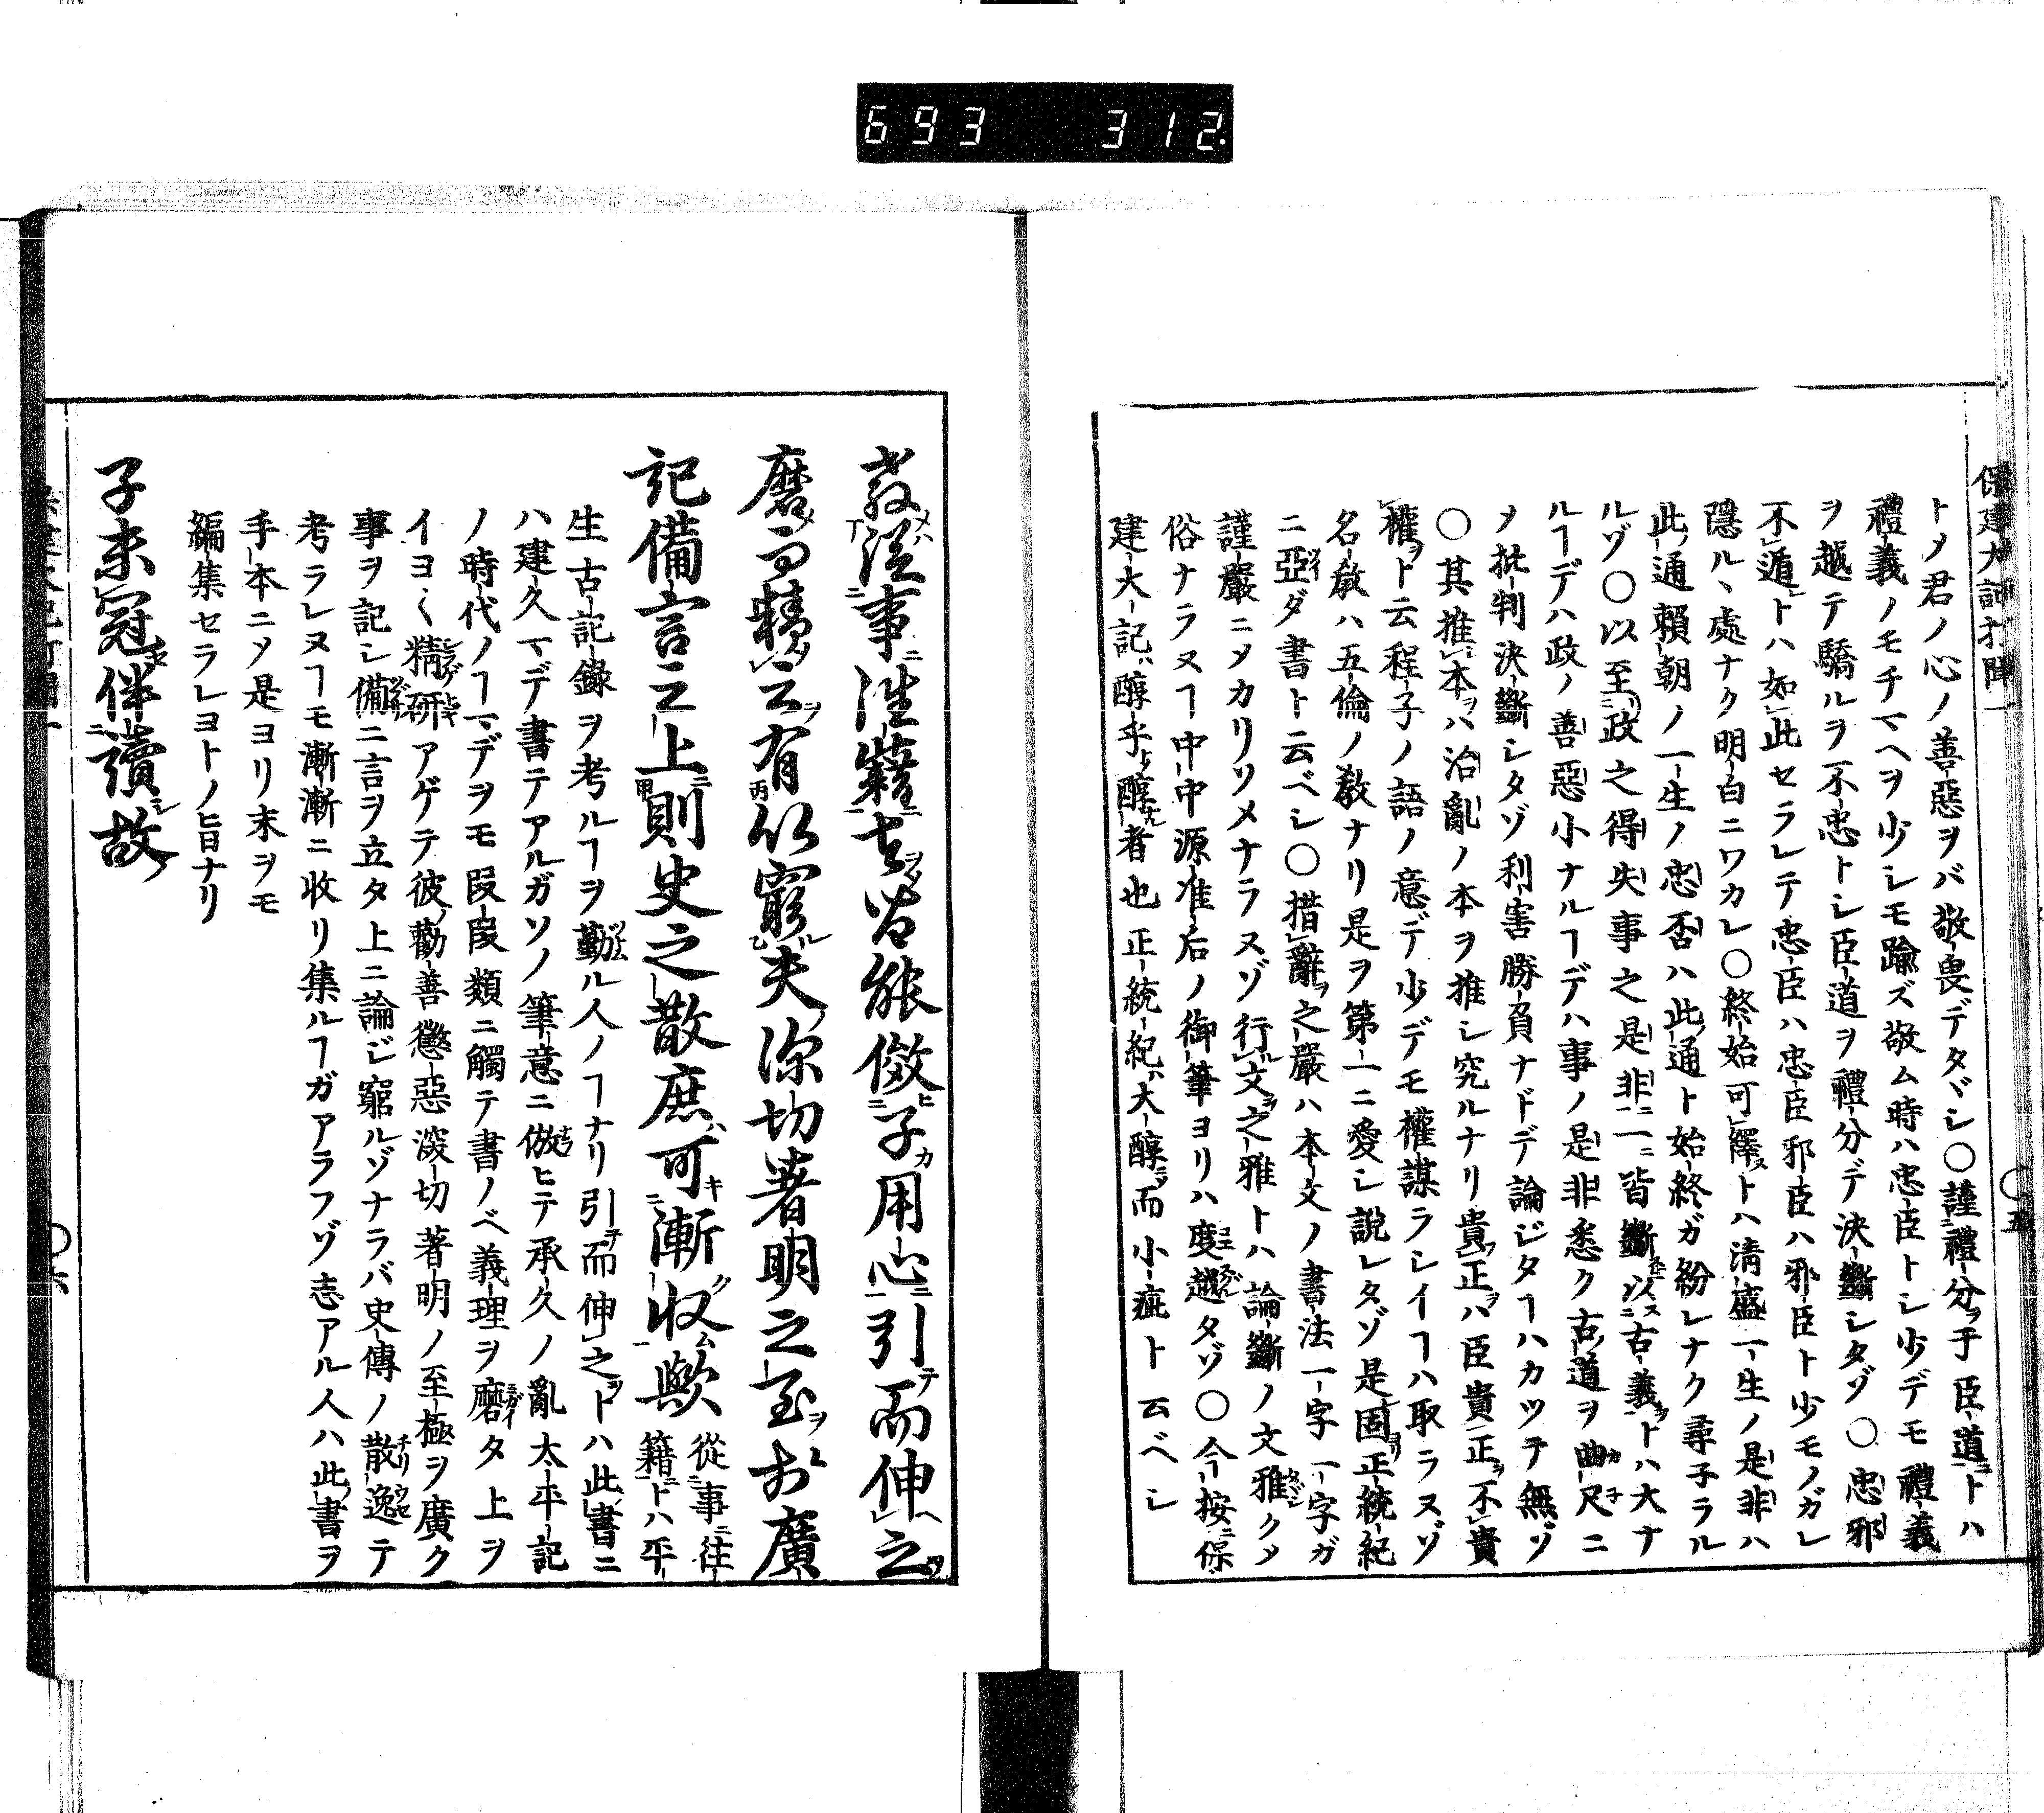 693 312
保建大記打聞一
〇五
トメ君ノ心ノ善惡ヲバ敬畏デタヾシ〇謹禮分于臣道トハ
禮義ノモチマヘヲ少シモ踰ズ敬ム時ハ忠臣トシ少デモ禮義
ヲ越テ驕ルヲ不忠トシ臣道ヲ禮分デ決斷シタゾ〇忠邪
不遁トハ如此セラレテ忠臣ハ忠臣邪臣ハ邪臣ト少モノガレ
隱ルヽ處ナク明白ニワカレ〇終始可繹トハ淸盛一生ノ是非ハ
此通賴朝ノ一生ノ忠否ハ此通ト始終ガ紛レナク尋子ラル
ルゾ〇以至政之得失事之是非一皆斷以古義トハ大ナ
ルヿデハ政ノ善惡小ナルヿデハ事ノ是非悉ク古道ヲ曲尺ニ
メ批判決斷シタゾ利害勝負ナドデ論ジタヿハカツテ無ゾ
〇其推本ハ治亂ノ本ヲ推シ究ルナリ貴正ハ臣貴正不貴
權ト云程子ノ語ノ意デ少デモ權謀ラシイヿハ取ラヌゾ
名敎ハ五倫ノ敎ナリ是ヲ第一ニ愛シ說レタゾ是固正統紀
ニ亞ダ書ト云ベシ〇措辭之嚴ハ本文ノ書法一字一字ガ
謹嚴ニメカリソメナラヌゾ行文之雅トハ論斷ノ文雅クメ
俗ナラヌヿ中中源准后ノ御筆ヨリハ度越タゾ〇今按保
建大記醇乎醇者也正統紀大醇而小疵ト云ベシ
敎從事往籍者皆能傚子用心引而伸之
磨而精之有以窮夫深切著明之至於廣
記備言之上則史之散庶可漸收歟 從事往
籍トハ平
生古記錄ヲ考ルヿヲ勤ル人ノヿナリ引而伸之トハ此書ニ
ハ建久マデ書テアルガソノ筆意ニ倣ヒテ承久ノ亂太平記
ノ時代ノヿマデヲモ段段類ニ觸テ書ノベ義理ヲ磨タ上ヲ
イヨ〱精研アゲテ彼勸善懲惡深切著明ノ至極ヲ廣ク
事ヲ記シ備ニ言ヲ立タ上ニ論ジ窮ルゾナラバ史傳ノ散逸テ
考ラレヌヿモ漸漸ニ收リ集ルヿガアラフゾ志アル人ハ此書ヲ
手本ニメ是ヨリ末ヲモ
編集セラレヨトノ旨ナリ
子未冠伴讀故
〇六